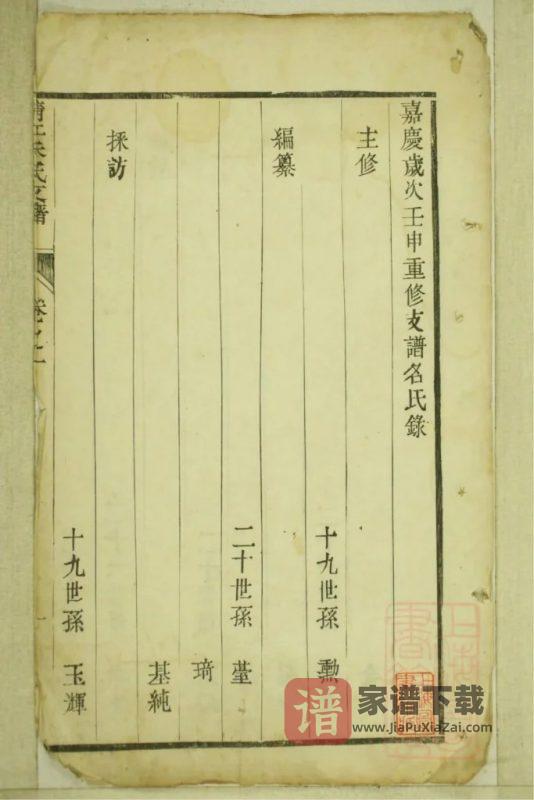 嘉慶歲次壬申重修支譜名氏錄
主修
十九世孫 勳
編纂
二十世孫 薹
琦
基純
採訪
十九世孫 玉輝
朱氏支譜
卷之一
谱
家谱下载
www.JiaPuXiaZai.com